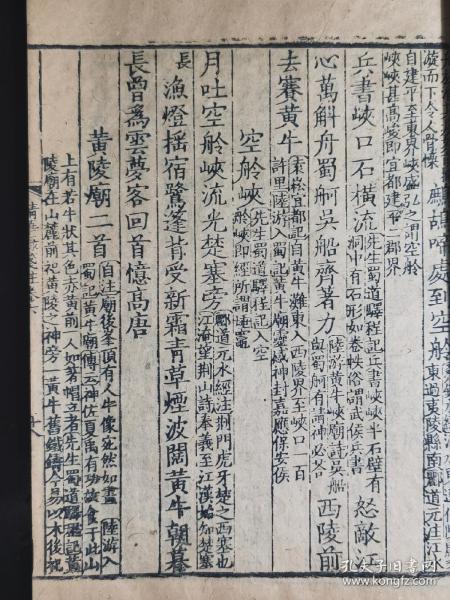 鷓鴣啼處到空舲
漩而下令人骨懷
自建平至東界峽盛弘之謂空舲
峽峽甚高峻即宜都建平二郡界
兵書峽口石橫流
先生蜀道驛程記兵書峽峽半石壁有
洞中有石形如卷帙俗謂武侯兵書
怒敵江
心萬斛舟蜀舸吳船齊著力
陸游黃牛峽廟詩吳船
與蜀舸有請神必答
西陵前
去賽黃牛
許里陸游入蜀記黃牛廟靈感神封嘉應保安侯
空舲峽
先生蜀道驛程記入空
舲峽即經所謂
月吐空舲峽流光楚塞旁
酈道元水經注荊門虎牙楚之西塞也
江淹望荊山詩奉義至江漢始知楚塞
長
漁燈搖宿鷺篷背受新霜青草煙波闊黃牛朝暮
長曾為雲夢客回首憶高唐
黃陵廟二首
自注廟後峯頂有人牛像宛然如畫
陸游入
蜀記黃牛廟傳云神佐夏禹有功故食于此山
上有若牛狀其色赤黃前一人如著帽立者先生蜀道驛程記黃
陵廟在山麓前祀黃陵之神旁一黃牛舊鐵鑄今易以木後祀
孔夫子旧书网